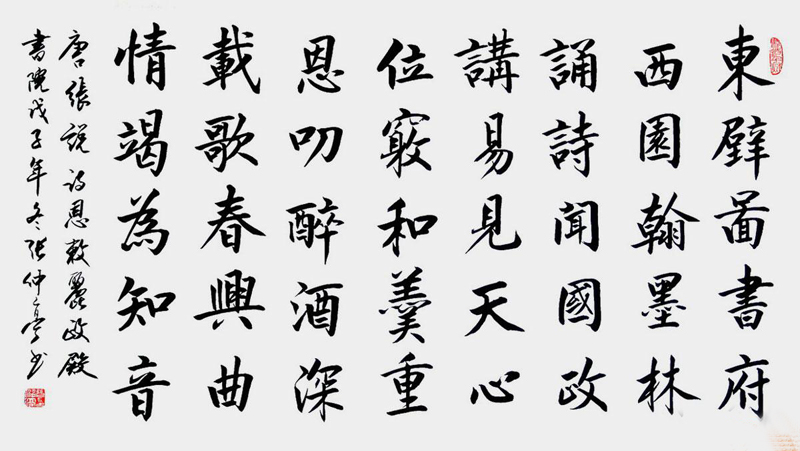 東壁圖書府
西園翰墨林
誦詩聞國政
講易見天心
位竊和羹重
恩叨醉酒深
載歌春興曲
情竭為知音
唐張說詩恩敕麗政殿
書院戊子年冬張仲亭书